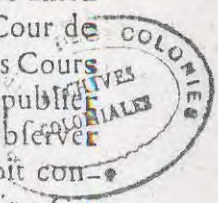 Cour de
s Cours
publier
observer
oit con-
COLONIES
ARCHIVES
COLONIALES